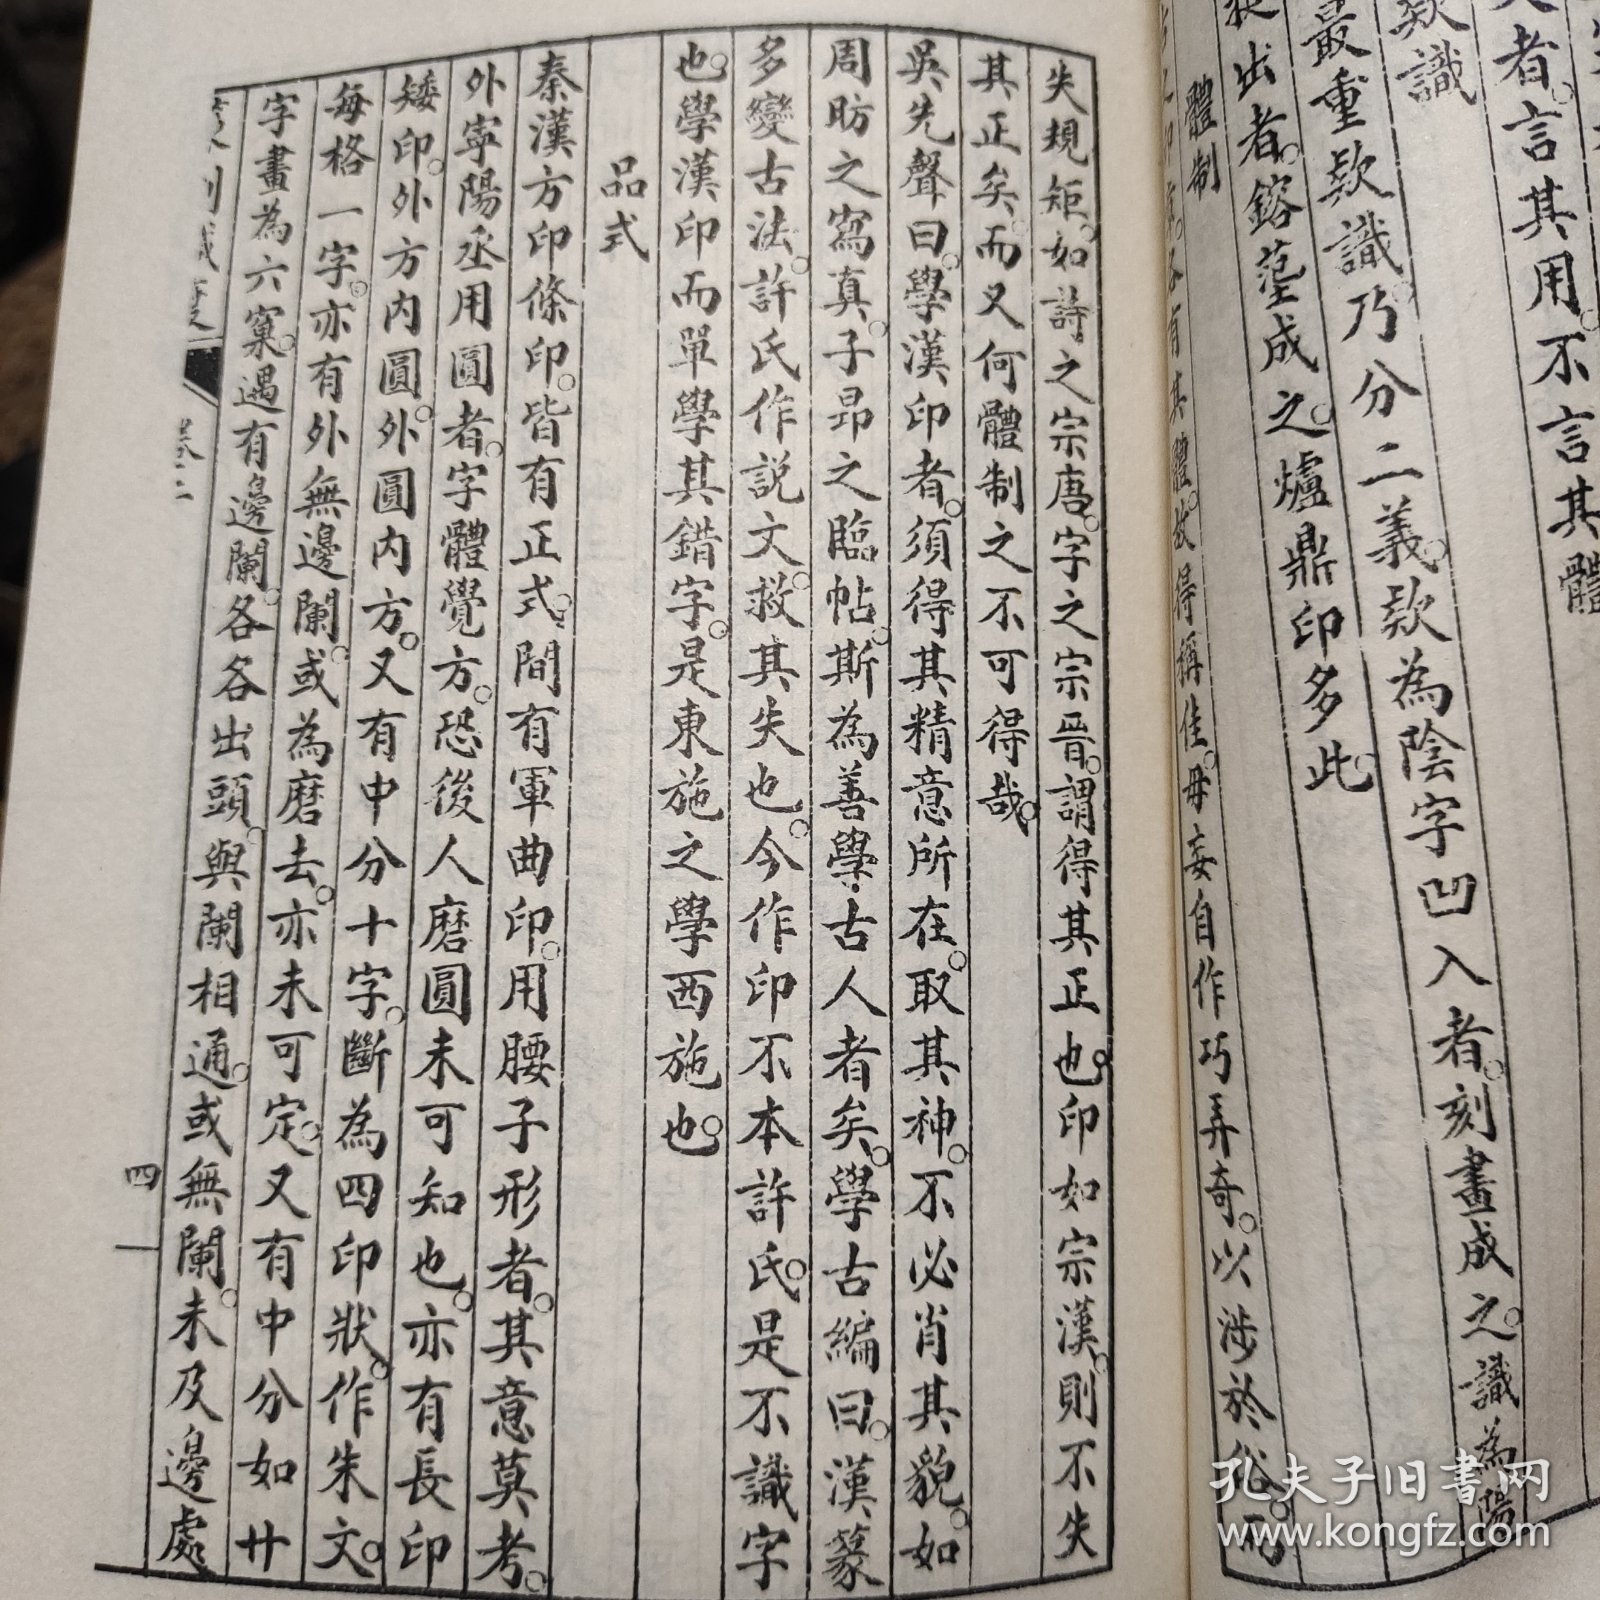 者。言其用。不言其體
欵識
最重欵識。乃分二義。欵為陰字凹入者。刻畫成之。識為陽
出者。鎔范成之。爐鼎印多此。
體制
有其體。狀得稱佳。毋妄自作巧弄奇。以涉於俗。而
失規矩。如詩之宗唐。字之宗晉。謂得其正也。印如宗漢。則不失
其正矣。而又何體制之不可得哉。
吳先聲曰。學漢印者。須得其精意所在。取其神。不必肖其貌。如
周昉之寫真。子昂之臨帖。斯為善學古人者矣。學古編曰。漢篆
多變古法。許氏作説文。救其失也。今作印不本許氏。是不識字
也。學漢印而單學其錯字。是東施之學西施也。
品式
秦漢方印條印。皆有正式。間有軍曲印。用腰子形者。其意莫考。
外寧陽丞用圓者。字體覺方。恐後人磨圓未可知也。亦有長印
矮印。外方内圓。外圓内方。又有中分十字。斷為四印狀。作朱文。
每格一字。亦有外無邊闌。或為磨去。亦未可定。又有中分如廾
字畫為六窠。遇有邊闌。各各出頭。與闌相通。或無闌。未及邊處
卷二
四
孔夫子旧书网
www.kongfz.com